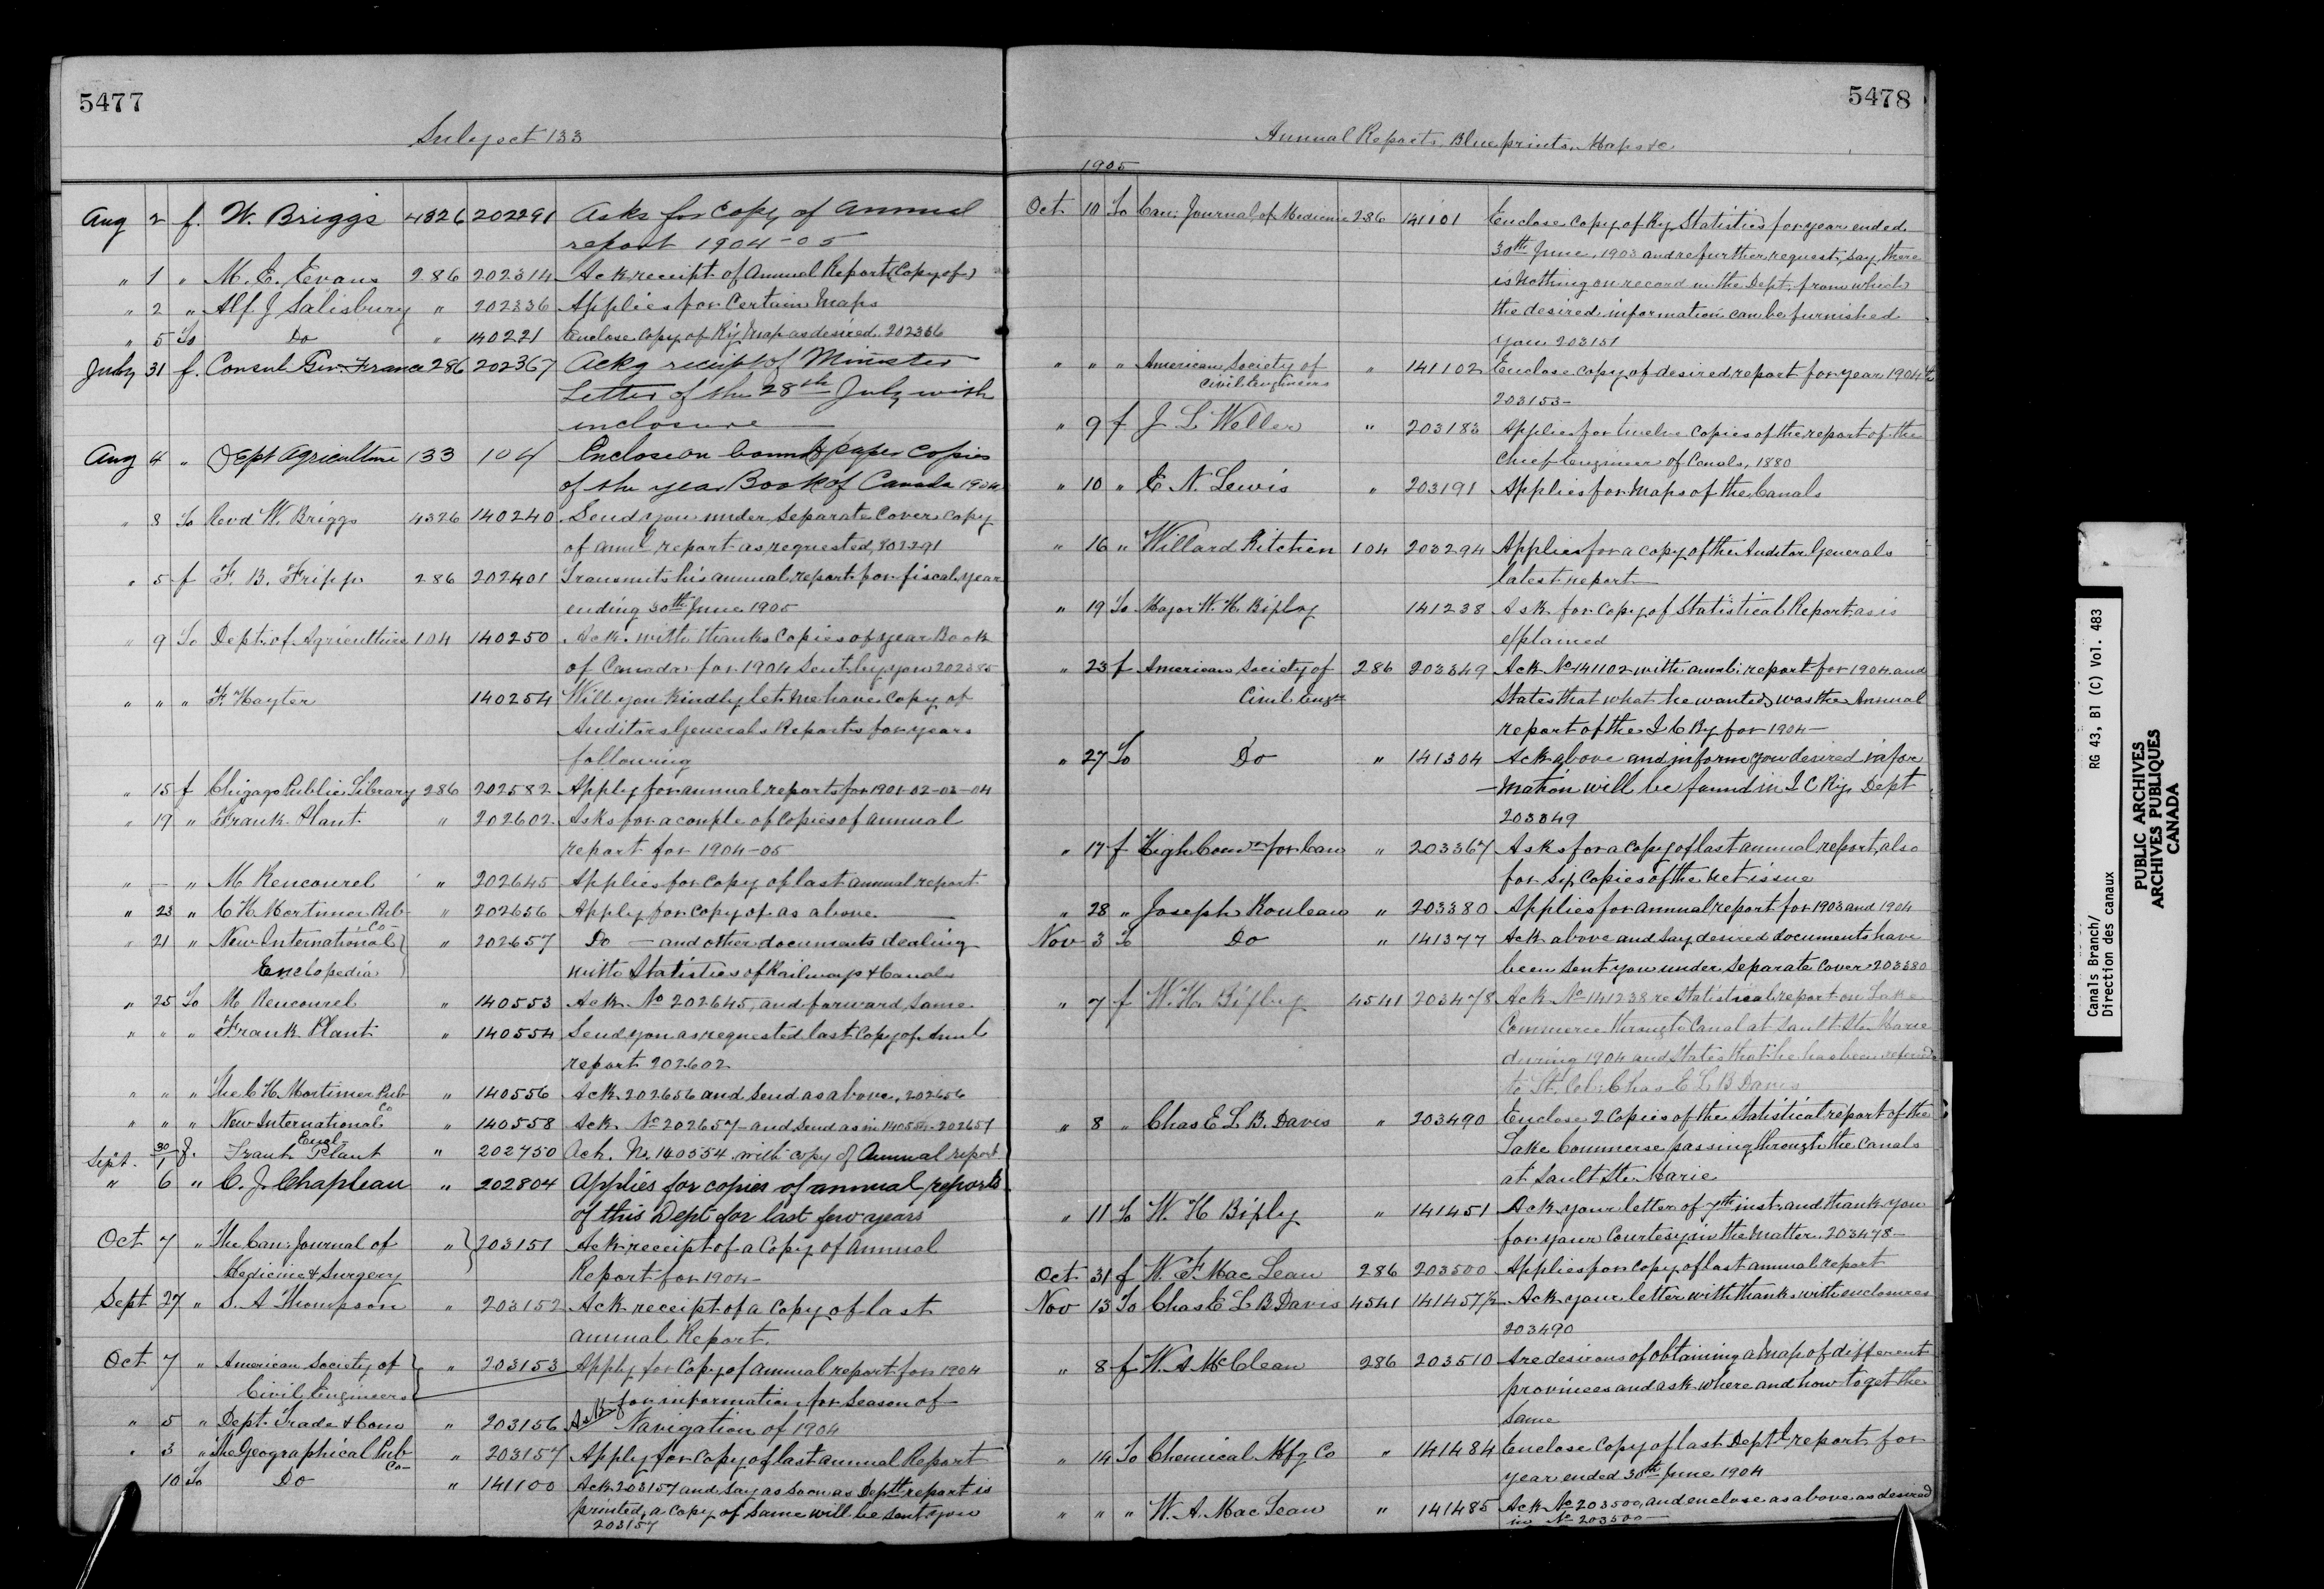 5477
Subject 133
Aug 2 f. W. Briggs 4326 202291 Asks for copy of annual
report 1904-05
" 1 " M. E. Evans 286 202314 Ack receipt of Annual Report (Copy of)
" 2 " Alf. J Salisbury " 202336 Applies for Certain Maps
" 5 To Do " 140221 Enclose copy of Ry Map as desired. 202336
July 31 f. Consul Gen. France 286 202367 Ackg receipt of Minister
Letter of the 28th July with
enclosure
Aug 4 " Dept Agriculture 133 104 Enclose on bound paper copies
of the year Book of Canada 1904
" 8 To Revd W. Briggs 4326 140240 Send you under separate cover copy
of annl report as requested, 202291
" 5 f F. B. Fripp 286 202401 Transmits his annual report for fiscal year
ending 30th June 1905
" 9 To Dept. of Agriculture 104 140250 Ack. with thanks copies of year Book
of Canada for 1904 sent by you 202385
" " " F. Hayter 140254 Will you kindly let me have copy of
Auditors Generals Reports for years
following
" 15 f Chigago Public Library 286 202582 Apply for annual reports for 1901-02-03-04
" 19 " Frank Plant " 202602 Asks for a couple of copies of annual
report for 1904-05
" — " M Rencourel " 202645 Applies for copy of last annual report
" 23 " C H Mortimer Pub Co " 202656 Apply for copy of as above
" 21 " New International " 202657 Do — and other documents dealing
Enclopedia with Statistics of Railways & Canals
" 25 To M Rencourel " 140553 Ack No 202645, and forward same
" " " Frank Plant " 140554 Send you as requested last copy of Annl
report 202602
" " " The C H Mortimer Pub Co " 140556 Ack 202656 and send as above, 202656
" " " New International Encl- " 140558 Ack No 202657 and send as in 140556. 202657
Sept. 30/1 f. Frank Plant " 202750 Ack. No. 140554 with copy of Annual report
" 6 " C. J. Chapleau " 202804 Applies for copies of annual reports
of this Dept for last few years
Oct 7 " The Can: Journal of " 203151 Ack receipt of a Copy of Annual
Medicine & Surgery Report for 1904-
Sept 27 " S. A Thompson " 203152 Ack receipt of a copy of last
annual Report.
Oct 7 " American Society of " 203153 Apply for Copy of annual report for 1904
Civil Engineers
" 5 " Dept. Trade & Com " 203156 Ask for information for Season of
Navigation of 1904
" 3 " The Geographical Pub Co- " 203157 Apply for copy of last annual Report
10 To Do " 141100 Ack 203157 and say as soon as Deptl report is
printed, a copy of same will be sent you
203157
5478
Annual Reports. Blue prints. Maps &c
1905
Oct. 10 To Can: Journal of Medicine 286 141101 Enclose copy of Ry Statistics for year ended
30th June, 1903 and re further request, say there
is nothing on record in the Dept. from which
the desired information can be furnished
you 203151
" " " American Society of " 141102 Enclose copy of desired report for year 1904
Civil Engineers 203153-
" 9 f J L Weller " 203183 Applies for twelve copies of the report of the
Chief Engineer of Canals, 1880
" 10 " E. N. Lewis " 203191 Applies for maps of the Canals
" 16 " Willard Kitchen 104 203294 Applies for a copy of the Auditor Generals
latest report
" 19 To Major W. H. Bixby 141238 Ask for copy of Statistical Report as is
explained
" 23 f American Society of 286 203349 Ack No 141102 with annl: report for 1904 and
Civil Engrs States that what he wanted was the Annual
report of the I C Ry for 1904-
" 27 To Do " 141304 Ack above and inform you desired infor
-mation will be found in I C Rys Dept
203349
" 17 f High Comr for Can " 203367 Asks for a copy of last annual report, also
for six copies of the next issue
" 28 " Joseph Rouleau " 203380 Applies for annual report for 1903 and 1904
Nov 3 To Do " 141377 Ack above and say desired documents have
been sent you under separate cover 203380
" 7 f W. H. Bixby 4541 203478 Ack No 141238 re Statistical report on Lake
Commerce through Canal at Sault Ste Marie
during 1904 and states that he has been referred
to Lt. Col: Chas E L B Davis
" 8 " Chas E L B. Davis " 203490 Enclose 2 copies of the Statistical report of the
Lake Commerse passing through the Canals
at Sault Ste. Marie
" 11 To W. H Bixby " 141451 Ack your letter of 7th inst. and thank you
for your Courtesy in the matter. 203478-
Oct 31 f W. F. MacLean 286 203500 Applies for copy of last annual report
Nov 13 To Chas E L B Davis 4541 141457½ Ack your letter with thanks with enclosures
203490
" 8 f W. A McClean 286 203510 Are desirous of obtaining a map of different
provinces and ask where and how to get the
same
" 14 To Chemical Mfg Co " 141484 Enclose copy of last Deptl report for
year ended 30th June 1904
" " " W. A. MacLean " 141485 Ack No 203500, and enclose as above as desired
in No 203500-
Canals Branch/ RG 43, B1 (C) Vol. 483
Direction des canaux
PUBLIC ARCHIVES
ARCHIVES PUBLIQUES
CANADA